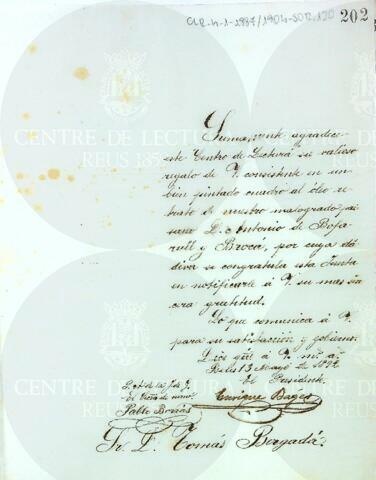 CLR-4-1-1887/1904-SOR.120
202
CENTRE DE LECTURA
REUS 1859
Sumamente agradece
este Centro de Lectura su valioso
regalo de V. consistente en un
bien pintado cuadro al óleo re-
trato de nuestro malogrado pai-
sano D. Antonio de Bofa-
rull y Brocá, por cuya dá-
diva se congratula esta Junta
en notificarle á V. su mas sin
cera gratitud.
Lo que comunica á V.
para su satisfacción y gobierno.
Dios gde á V. ms. as.
Reus 13 Mayo de 1892
El Presidente
Enrique Bages
P. A. de la J. de G.
Pablo Borrás
Sr. D. Tomás Bergadá.